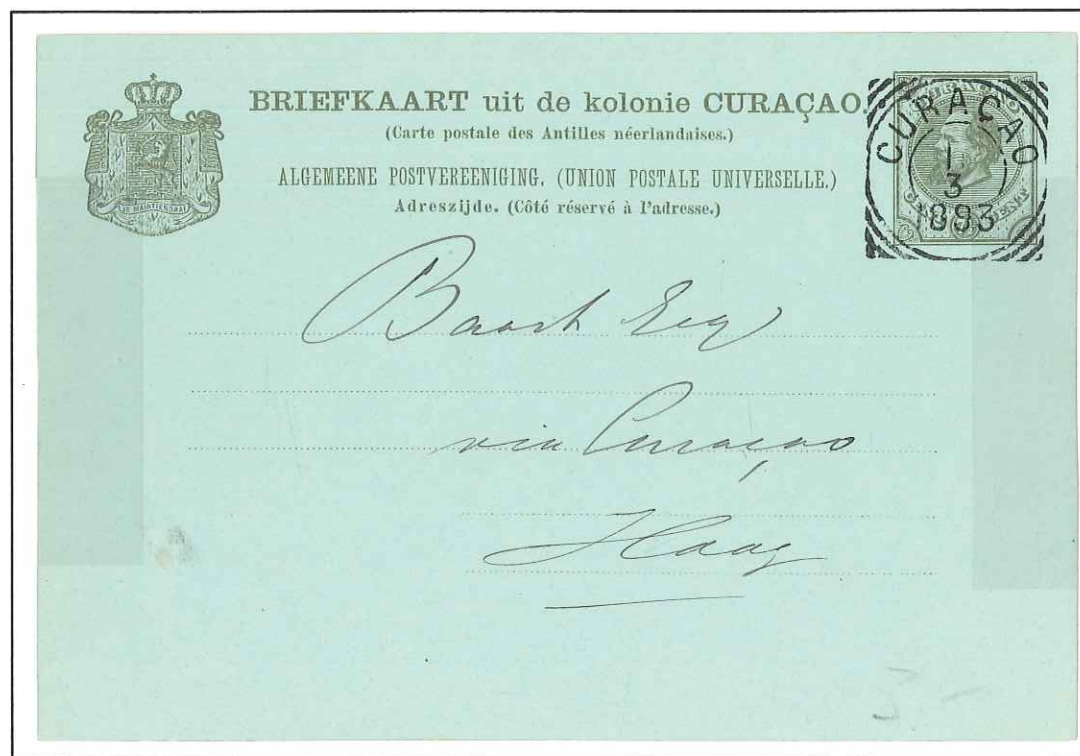 BRIEFKAART uit de kolonie CURAÇAO.
(Carte postale des Antilles néerlandaises.)
ALGEMEENE POSTVEREENIGING. (UNION POSTALE UNIVERSELLE.)
Adreszijde. (Côté réservé à l'adresse.)
JE MAINTIENDRAI
CURAÇAO
1
3
1893
CENT
Baart Esq
via Curaçao
Haag
3 -